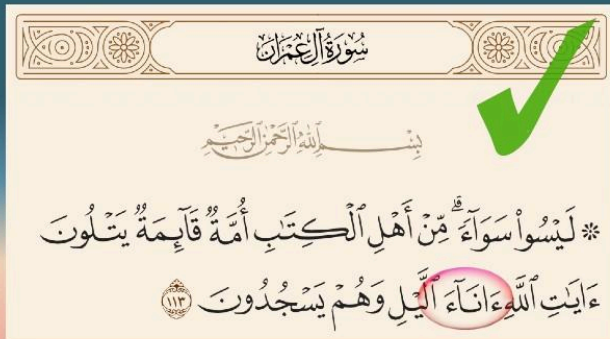 سُورَةُ آلِ عِمْرَانَ
بِسْمِ اللَّهِ الرَّحْمَٰنِ الرَّحِيمِ
۞ لَيْسُوا۟ سَوَآءً ۗ مِّنْ أَهْلِ ٱلْكِتَٰبِ أُمَّةٌ قَآئِمَةٌ يَتْلُونَ
ءَايَٰتِ ٱللَّهِ ءَانَآءَ ٱلَّيْلِ وَهُمْ يَسْجُدُونَ ١١٣